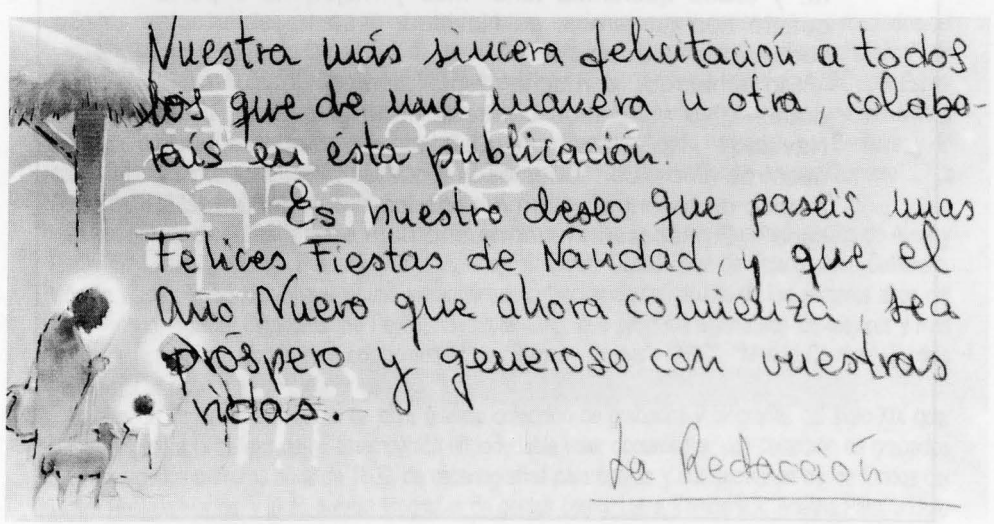 Nuestra más sincera felicitación a todos
los que de una manera u otra, colabo-
rais en ésta publicación.
Es nuestro deseo que paseis unas
Felices Fiestas de Navidad, y que el
Año Nuevo que ahora comienza, sea
próspero y generoso con vuestras
vidas.
La Redacción